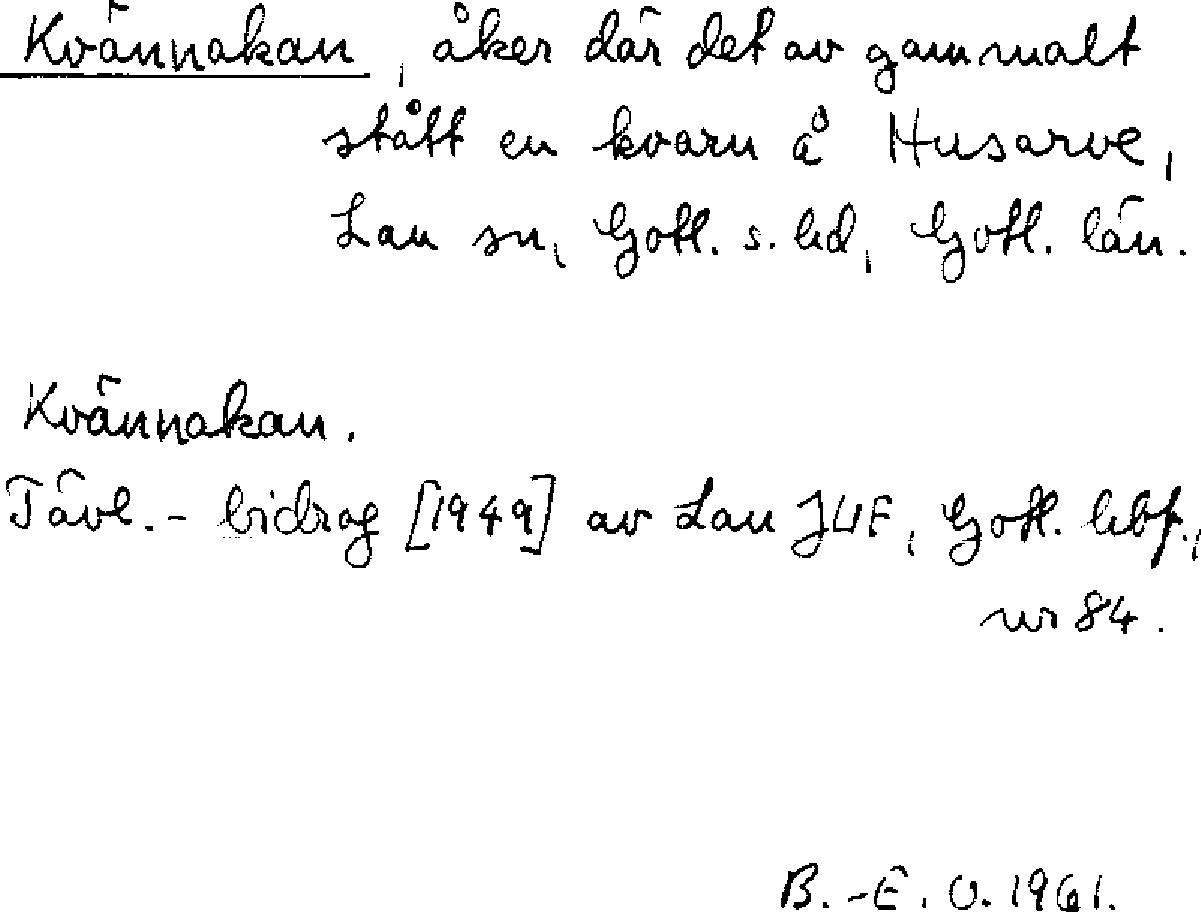 Kvännakan, åker där det av gammalt
stått en kvarn å Husarve,
Lau sn, Gotl. s. hd, Gotl. län.
Kvännakan.
Tävl.-bidrag [1949] av Lau JUF, Gotl. hbf.,
nr 84.
B.-E. O. 1961.